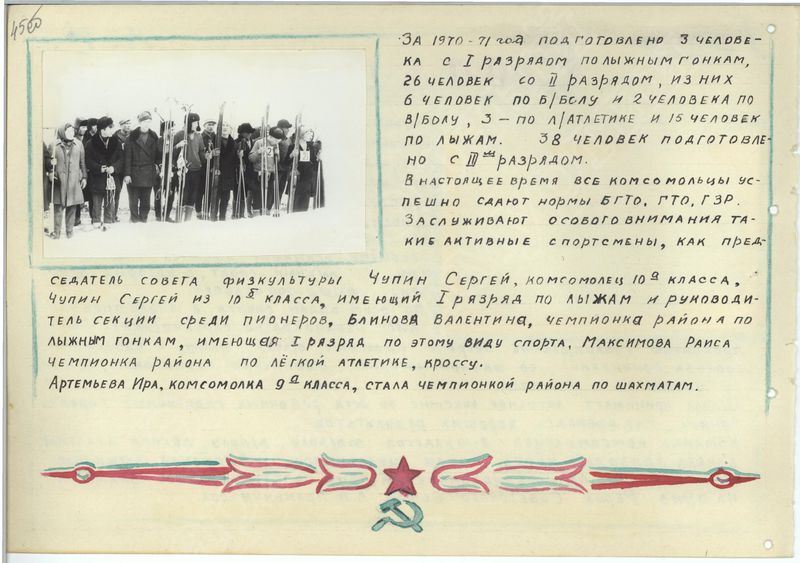 45об
За 1970-71 год подготовлено 3 челове-
ка с I разрядом по лыжным гонкам,
26 человек со II разрядом, из них
6 человек по б/болу и 2 человека по
в/болу, 3 - по л/атлетике и 15 человек
по лыжам. 38 человек подготовле-
но с III им разрядом.
В настоящее время все комсомольцы ус-
пешно сдают нормы БГТО, ГТО, ГЗР.
Заслуживают особого внимания та-
кие активные спортсмены, как пред-
седатель совета физкультуры Чупин Сергей, комсомолец 10 а класса,
Чупин Сергей из 10 б класса, имеющий I рязряд по лыжам и руководи-
тель секции среди пионеров, Блинова Валентина, чемпионка района по
лыжным гонкам, имеющая I разряд по этому виду спорта, Максимова Раиса
чемпионка района по лёгкой атлетике, кроссу.
Артемьева Ира, комсомолка 9 а класса, стала чемпионкой района по шахматам.